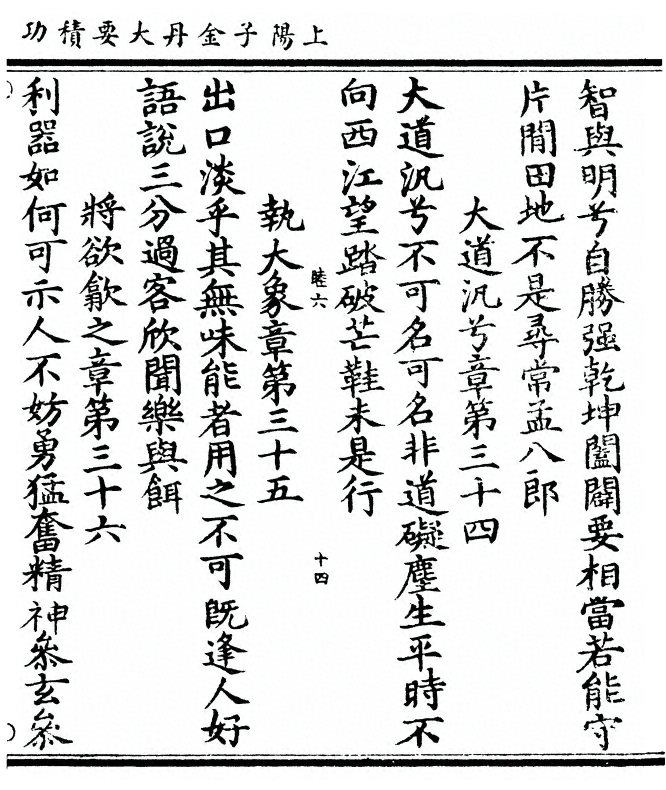 上陽子金丹大要積功
智與明兮自勝强乾坤闔闢要相當若能守
片閒田地不是尋常孟八郎
大道汎兮章第三十四
大道汎兮不可名可名非道礙塵生平時不
向西江望踏破芒鞋未是行
睦六
十四
執大象章第三十五
出口淡乎其無味能者用之不可旣逢人好
語說三分過客欣聞樂與餌
將欲歙之章第三十六
利器如何可示人不妨勇猛奮精神叅玄叅